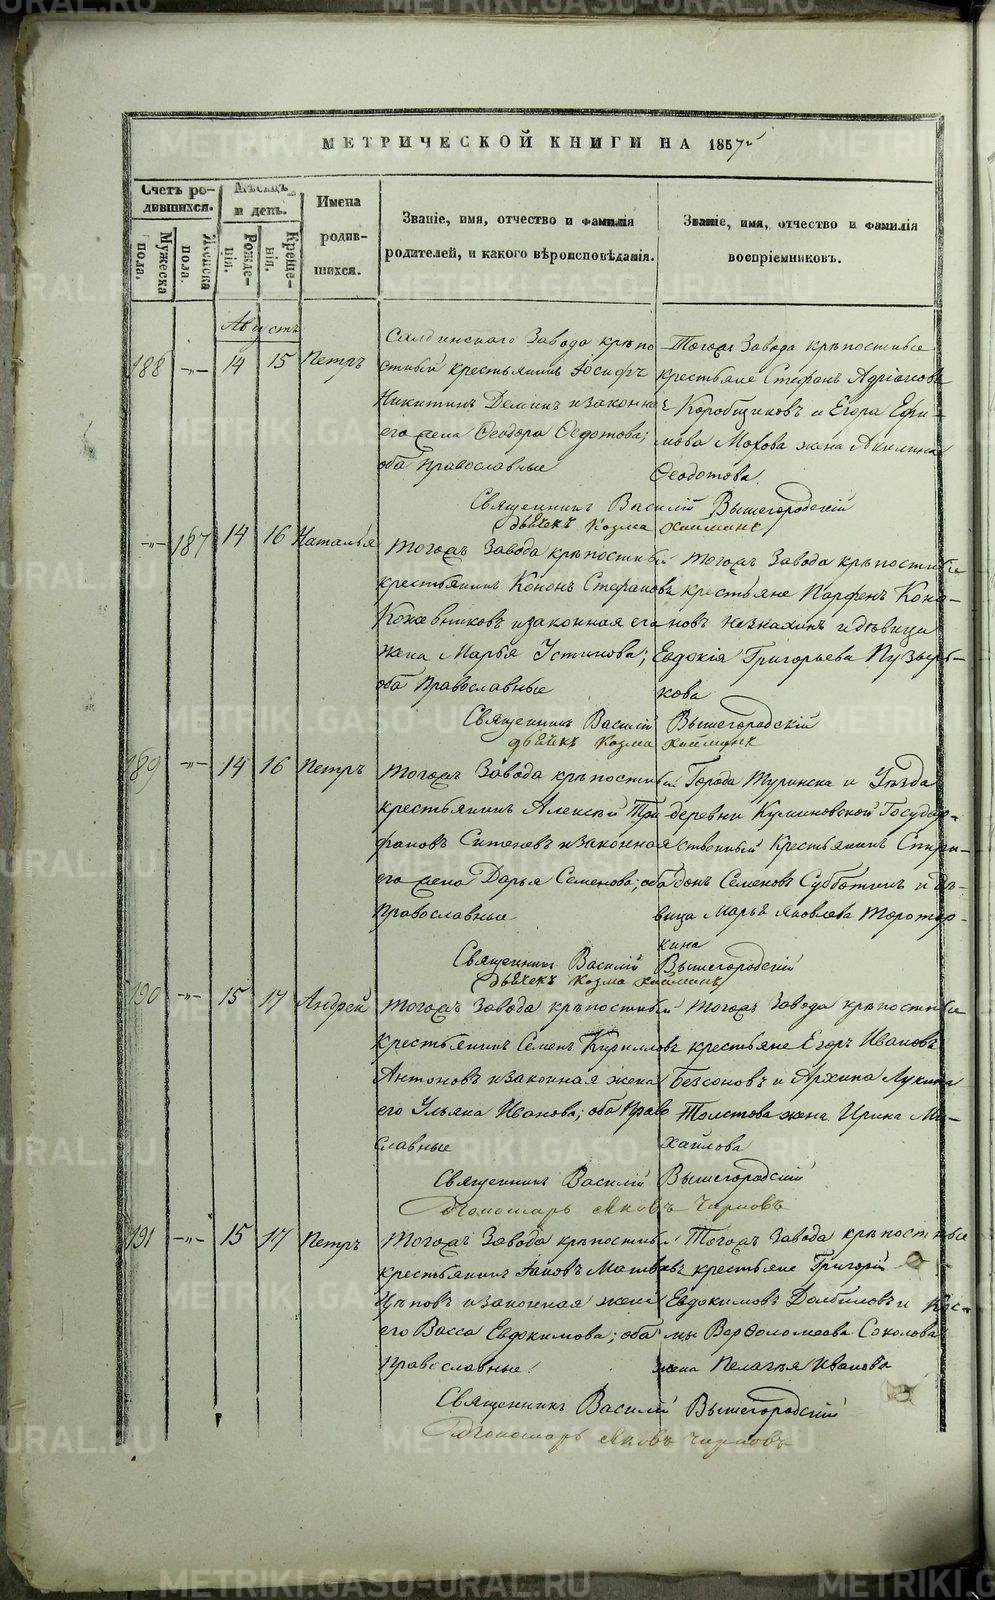 МЕТРИЧЕСКОЙ КНИГИ НА 1857й
Счетъ ро-
дившихся.
Мѣсяцъ
и день.
Имена
родив-
шихся.
Званіе, имя, отчество и фамилія
родителей, и какого вѣроисповѣданія.
Званіе, имя, отчество и фамилія
воспріемниковъ.
Мужеска
пола.
Женска
пола.
Рожде-
нія.
Креще-
нія.
Августъ
188 -"- 14 15 Петръ
Салдинскаго Завода крѣпо
стный крестьянинъ Іосифъ
Никитинъ Деминъ и законна
его жена Ѳеодора Ѳедотова;
оба православные
Тогожъ Завода крѣпостные
крестьяне Стефанъ Адріановъ
Коробщиковъ и Егора Ефи-
мова Мохова жена Акилина
Ѳеодотова.
Священникъ Василій Вышегородскій
Дьячекъ Козма Хайминъ
-"- 187 14 16 Наталья
Тогожъ Завода крѣпостный
крестьянинъ Кононъ Стефановъ
Кожевниковъ и законная его
жена Марья Устинова;
оба православные
Тогожъ Завода крѣпостные
крестьяне Парфенъ Коно-
новъ Незнахинъ и дѣвица
Евдокія Григорьева Пузырь-
кова
Священникъ Василій Вышегородскій
Дьячекъ Козма Хайминъ
189 -"- 14 16 Петръ
Тогожъ Завода крѣпостный
крестьянинъ Алексѣй Три
фоновъ Ситеневъ и законная
его жена Дарья Семенова; оба
Православные
Города Туринска и Уѣзда
деревни Кулиновской Государ-
ственный Крестьянинъ Спири-
донъ Семеновъ Субботинъ и дѣ-
вица Марья Яковлева Тротор-
кина
Священникъ Василій Вышегородскій
Дьячекъ Козма Хайминъ
190 -"- 15 17 Андрей
Тогожъ Завода крѣпостный
крестьянинъ Семенъ Кирилловъ
Антоновъ и законная жена
его Ульяна Иванова; оба Право
славные
Тогожъ Завода крѣпостные
крестьяне Егоръ Ивановъ
Безсоновъ и Архипа Лукина
Толстова жена Ирина Ми-
хайлова
Священникъ Василій Вышегородскій
Пономарь Яковъ Чирковъ
191 -"- 15 17 Петръ
Тогожъ Завода крѣпостный
крестьянинъ Іаковъ Матвѣевъ
и законная жена
его Васса Евдокимова; оба
православные.
Тогожъ Завода крѣпостные
крестьяне Григорій
Евдокимовъ Долбиловъ и Кос-
мы Варѳоломеова Соколова
жена Пелагея Иванова
Священникъ Василій Вышегородскій
Пономарь Яковъ Чирковъ
METRIKI.GASO-URAL.RU